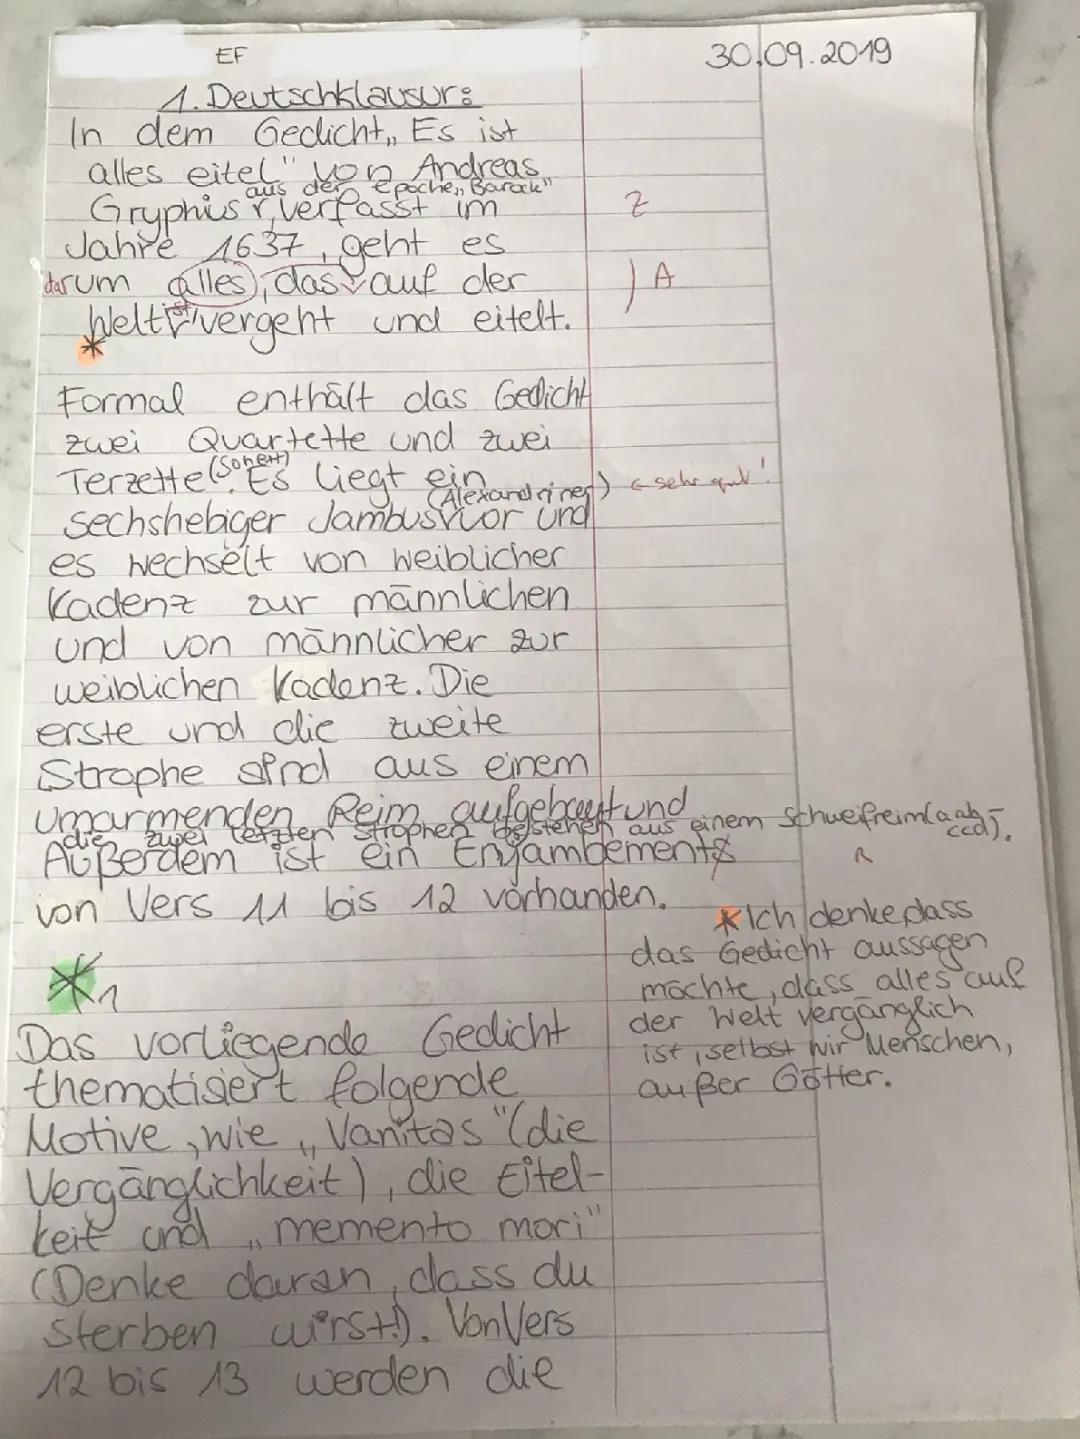 EF
30.09.2019
1. Deutschklausur:
In dem Gedicht „Es ist
alles eitel" von Andreas
aus der Epoche „Barock"
Gryphius, verfasst im
Z
Jahre 1637, geht es
darum alles, das auf der
A
Welt ist vergeht und eitelt.
*
Formal enthält das Gedicht
zwei Quartette und zwei
Terzette (Sonett). Es liegt ein
← sehr gut!
(Alexandriner)
sechshebiger Jambus vor und
es wechselt von weiblicher
Kadenz zur männlichen
und von männlicher zur
weiblichen Kadenz. Die
erste und die zweite
Strophe sind aus einem
umarmenden Reim aufgebaut und
die zwei letzten Strophen bestehen aus einem Schweifreim (aab, ccd).
Außerdem ist ein Enjambements
R
von Vers 11 bis 12 vorhanden.
*1
*Ich denke, dass
das Gedicht aussagen
möchte, dass alles auf
der Welt vergänglich
ist, selbst wir Menschen,
außer Götter.
Das vorliegende Gedicht
thematisiert folgende
Motive, wie „Vanitas" (die
Vergänglichkeit), die Eitel-
keit und „memento mori"
(Denke daran, dass du
sterben wirst!). Von Vers
12 bis 13 werden die